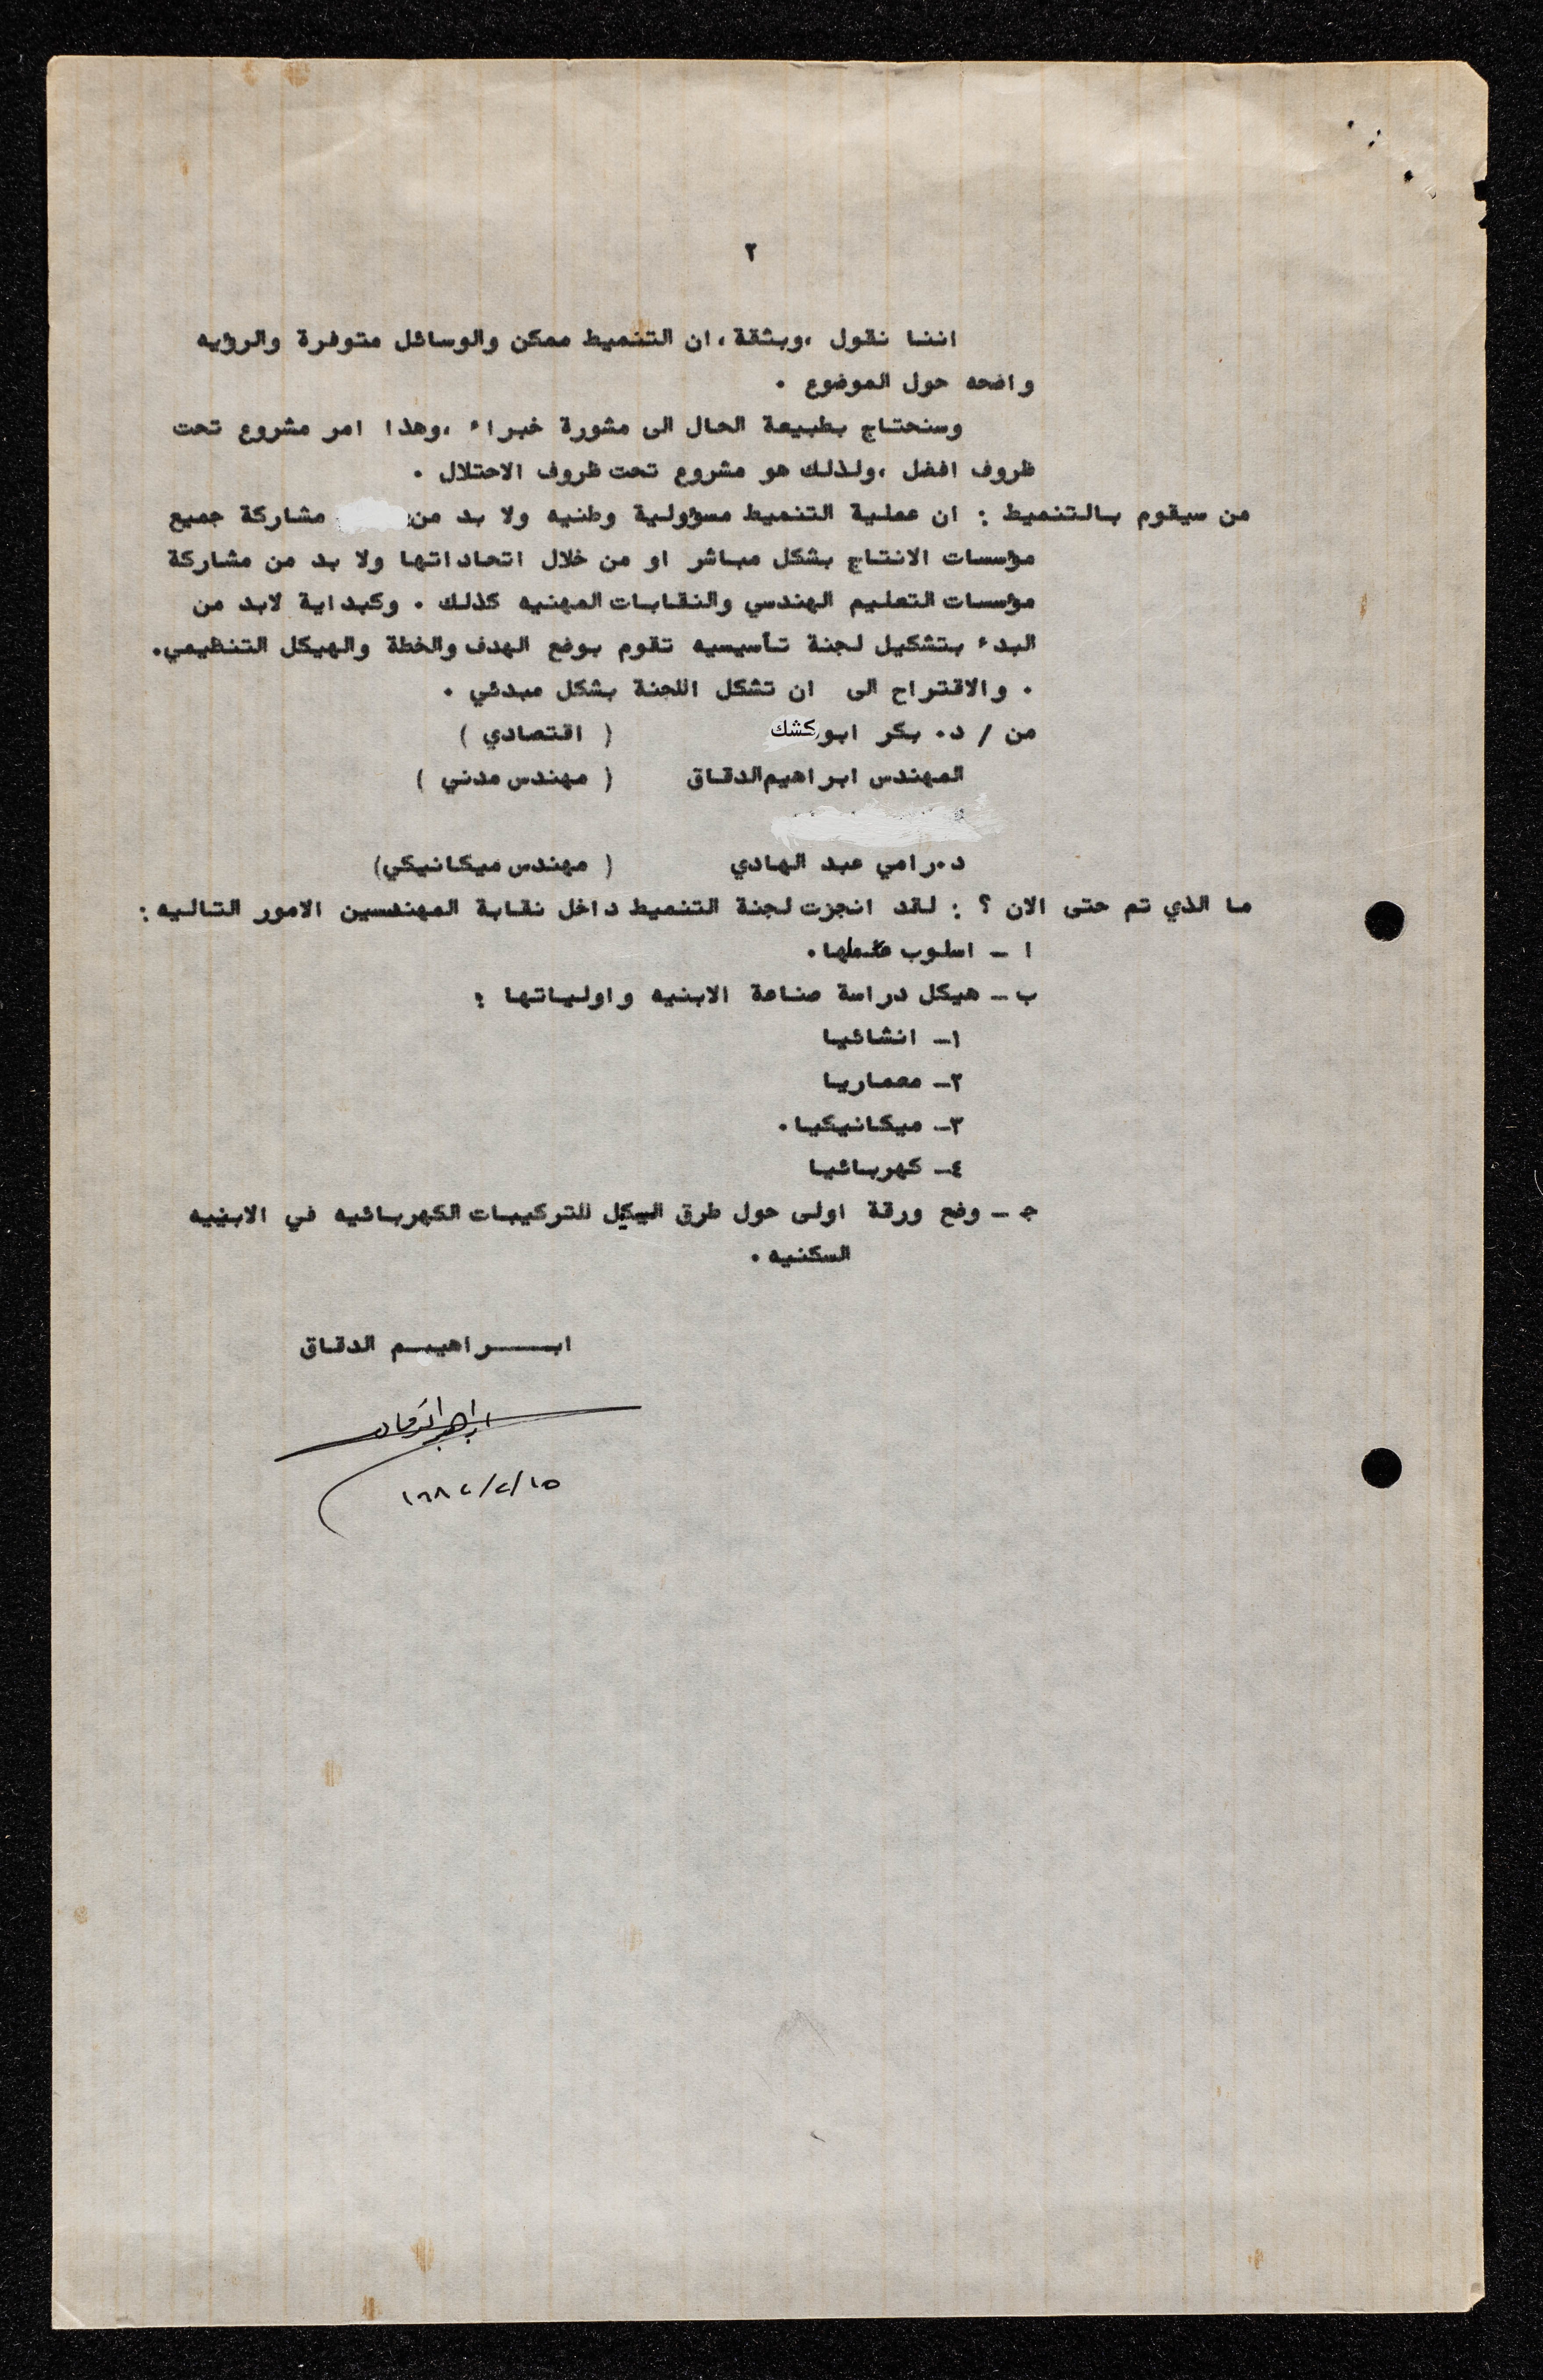 ٢
اننا نقول ،وبثقة ، ان التنميط ممكن والوسائل متوفرة والرؤيه
واضحه حول الموضوع .
وسنحتاج بطبيعة الحال الى مشورة خبراء ،وهذا امر مشروع تحت
ظروف افضل ،ولذلك هو مشروع تحت ظروف الاحتلال .
من سيقوم بالتنميط : ان عملية التنميط مسؤولية وطنيه ولا بد من مشاركة جميع
مؤسسات الانتاج بشكل مباشر او من خلال اتحاداتها ولا بد من مشاركة
مؤسسات التعليم الهندسي والنقابات المهنيه كذلك . وكبداية لابد من
البدء بتشكيل لجنة تأسيسيه تقوم بوضع الهدف والخطة والهيكل التنظيمي.
. والاقتراح الى ان تشكل اللجنة بشكل مبدئي .
من / د. بكر ابو كشك ( اقتصادي )
المهندس ابراهيم الدقاق ( مهندس مدني )
د.رامي عبد الهادي ( مهندس ميكانيكي)
ما الذي تم حتى الان ؟ : لقد انجزت لجنة التنميط داخل نقابة المهندسين الامور التاليه :
ا - اسلوب عملها.
ب - هيكل دراسة صناعة الابنيه واولياتها :
١- انشائيا
٢- معماريا
٣- ميكانيكيا.
٤- كهربائيا
ج - وضع ورقة اولى حول طرق للتركيبات الكهربائيه في الابنيه
السكنيه .
ابـــــراهيـــم الدقاق
ابراهيم الدقاق
١٩٨٢/٢/١٥